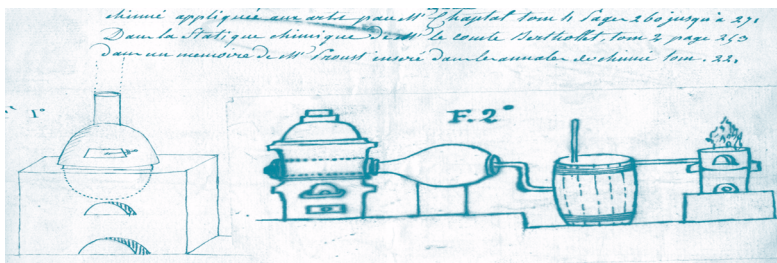 chimie appliquée aux arts par Mr Chaptal tom 4 page 260 jusqu'a 271
Dans la Statique chimique de Mr le comte Berthollet, tom 2 page 253
dans un memoire de Mr Proust inseré dans les annales de chimie tom. 22.
1°
F. 2°